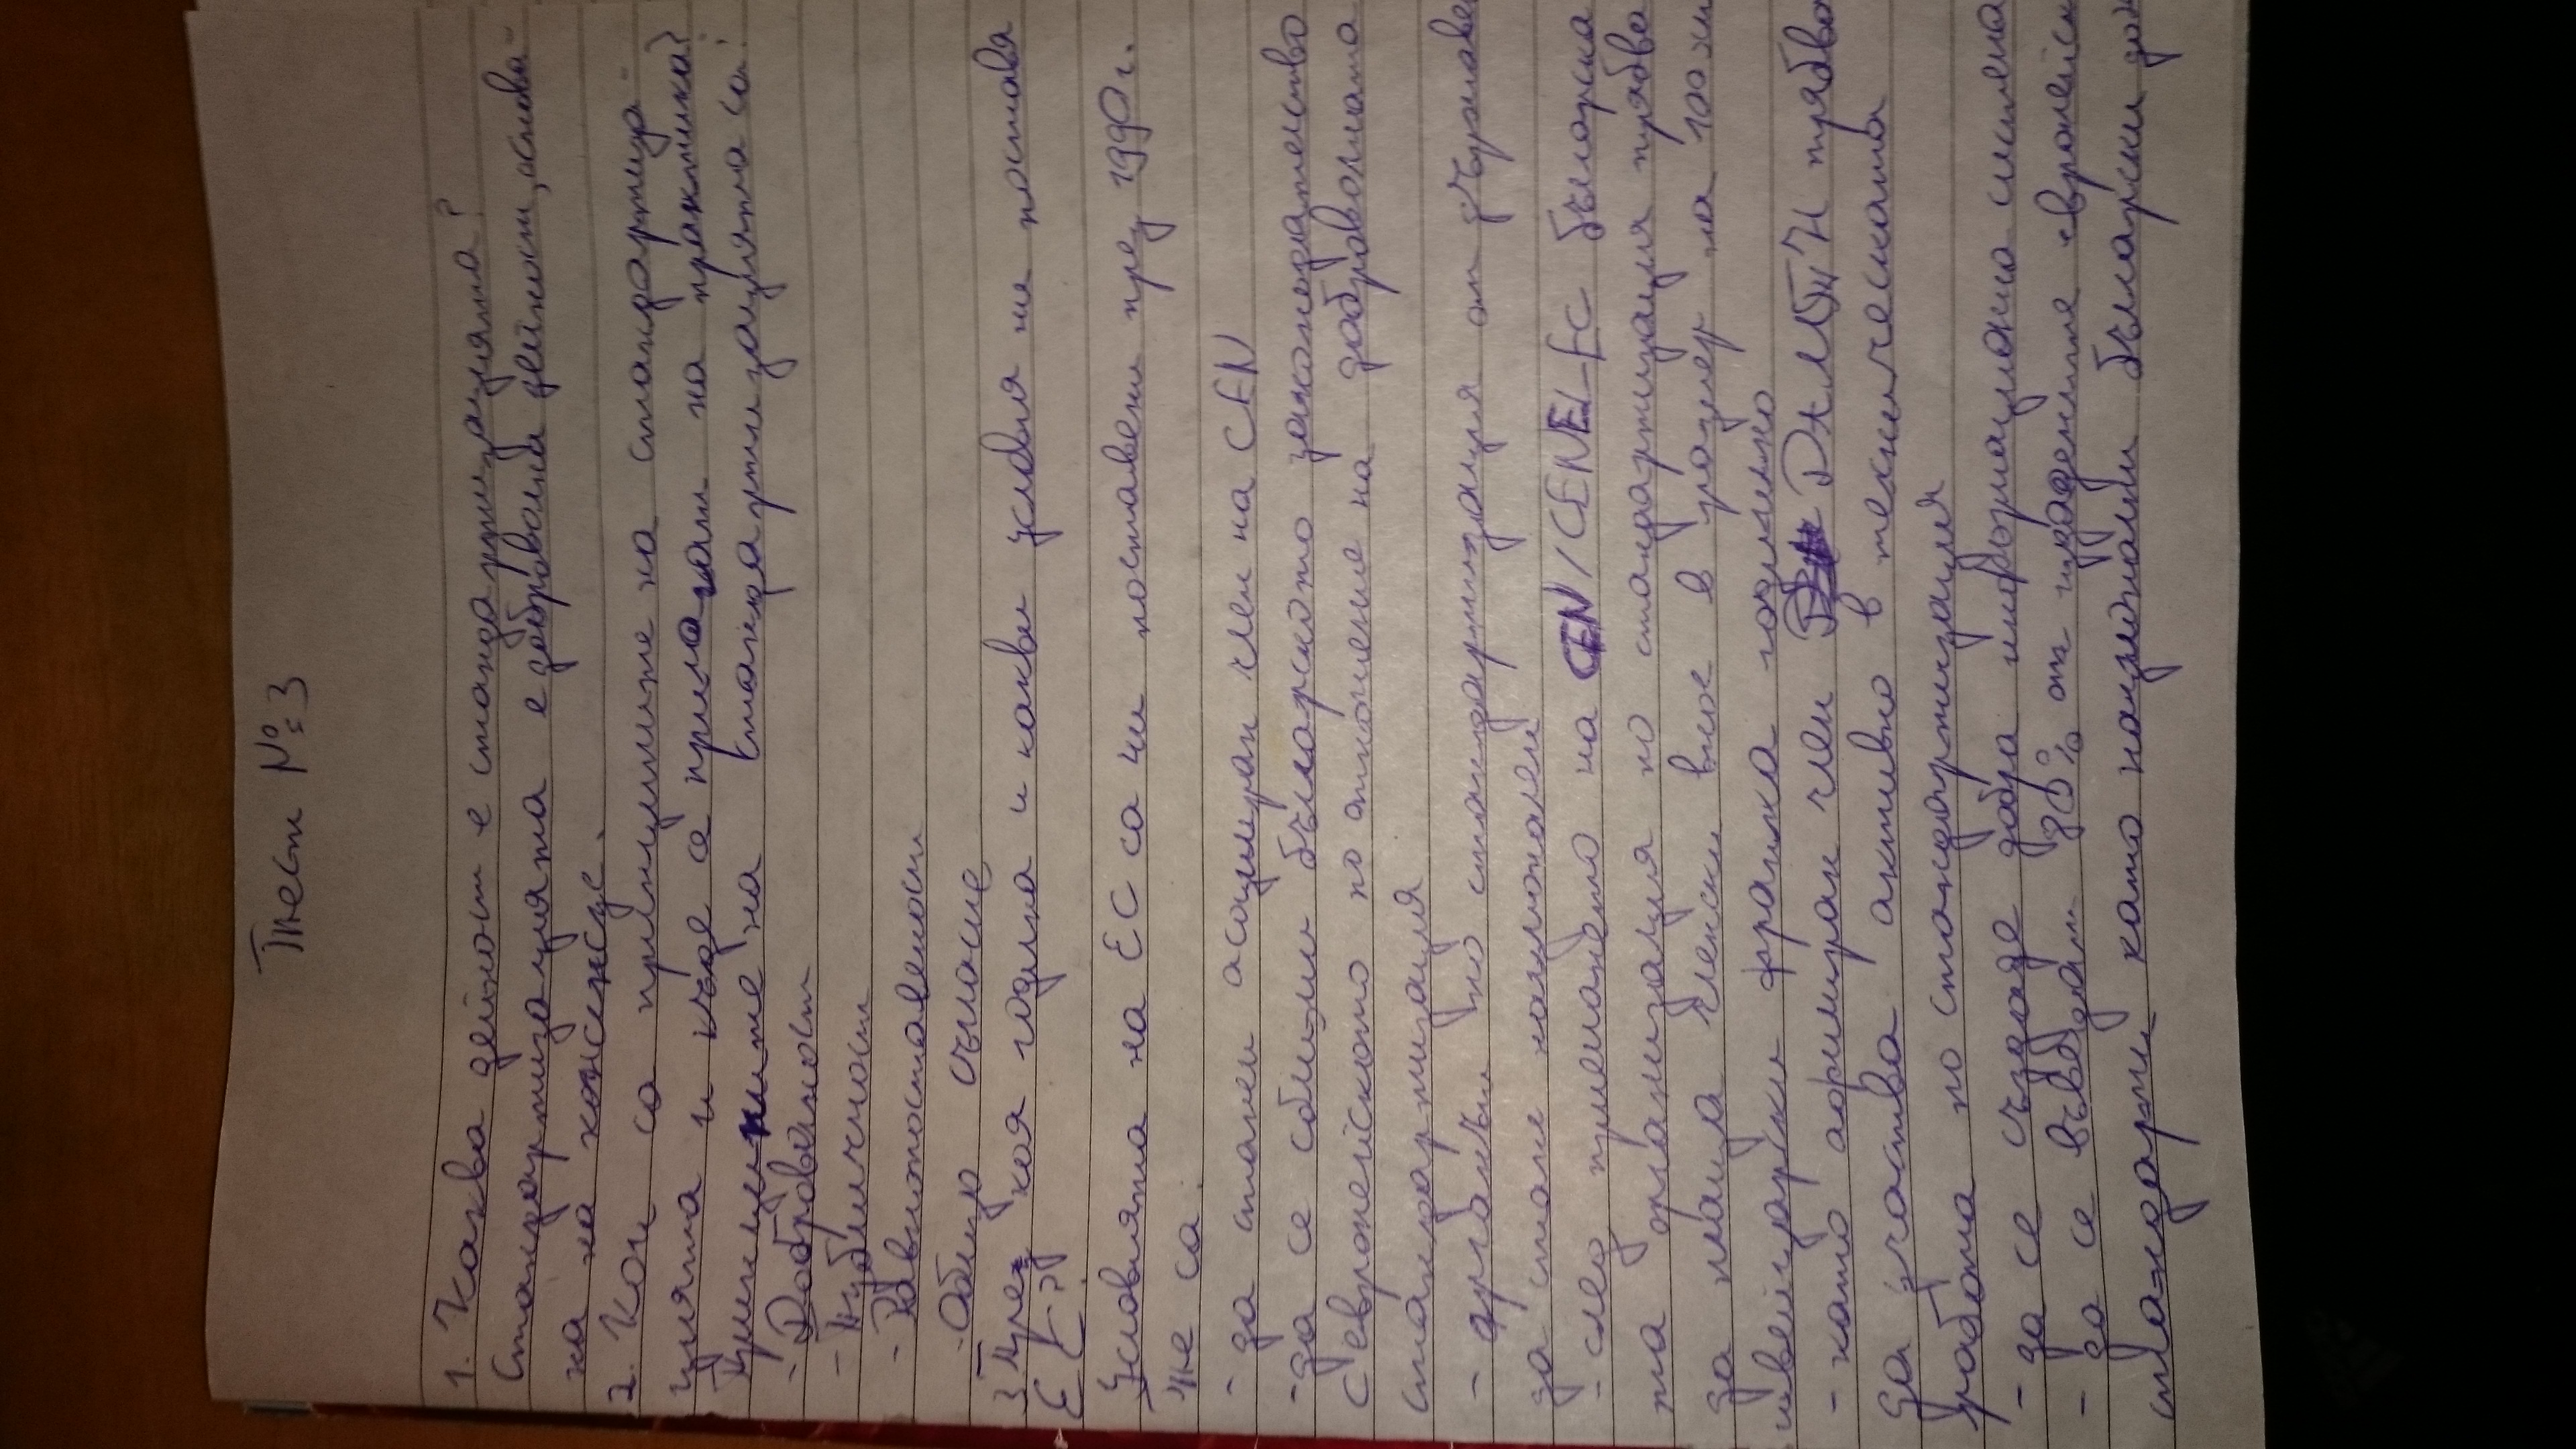 Тест №3
1. Каква дейност е стандартизацията?
Стандартизацията е доброволна дейност, основа-
на на консенсус.
2. Кои са принципите на стандартиза-
цията и къде се прилагат на практика?
Принципите на стандартизацията са:
- Доброволност
- Публичност
- Равнопоставеност
- Общо съгласие
3. През коя година и какви условия ни поставя
ЕС?
Условията на ЕС са ни поставени през 1990г.
Те са:
- да станем асоцииран член на CEN
- да се сближи българското законодателство
с европейското по отношение на доброволната
стандартизация
- органът по стандартизация от държавен
да стане национален
- след приемането на CEN/CENELEC българска
та организация по стандартизация трябва
да плаща членски внос в размер на 100 хил
швейцарски франка годишно
- като афилиран член ДАМТН трябва
да участва активно в техническата
работа по стандартизация
- да се създаде добра информационна система
- да се въведат 80% от издадените европейск
стандарти като национални български